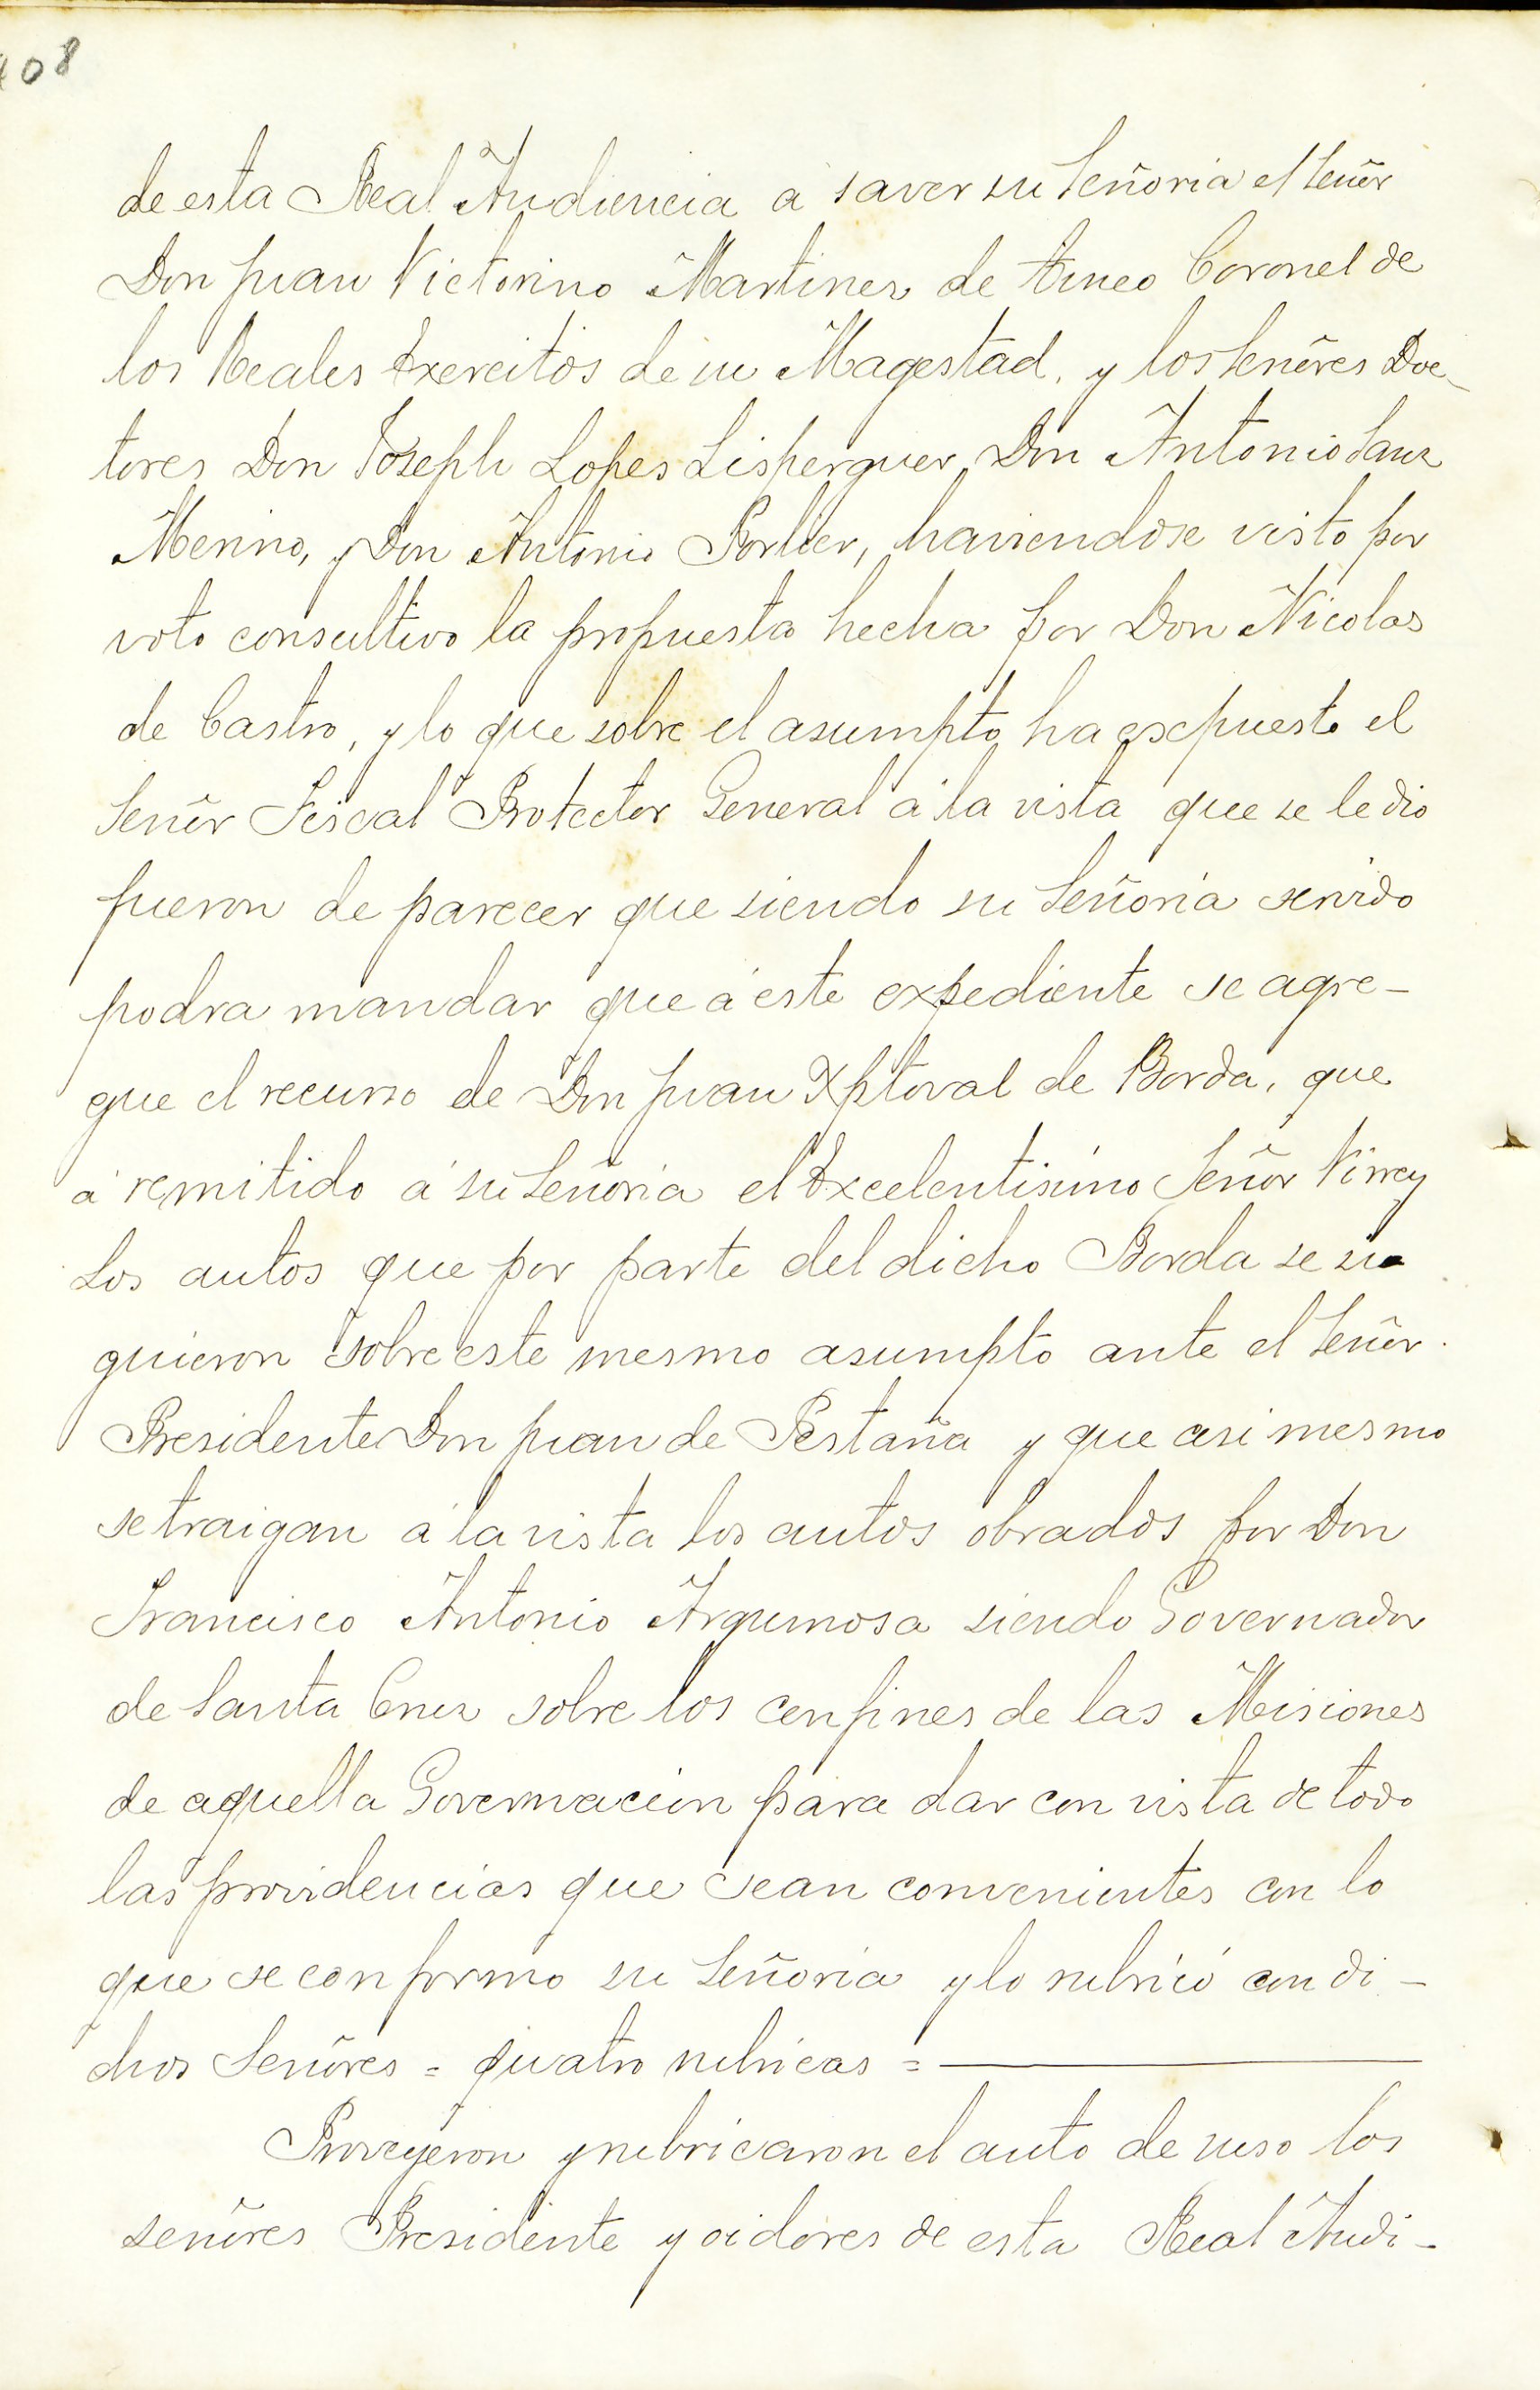 408
de esta Real Audiencia a saver su Señoria el Señor
Don Juan Victorino Martines de tineo Coronel de
los Reales Exercitos de su Magestad, y los Señores Doc-
tores Don Joseph Lopes Lisperguer Don Antonio Sanz
Merino, y Don Antonio Porlier, haviendose visto por
voto consultivo la propuesta hecha por Don Nicolas
de Castro, y lo que sobre el asumpto ha expuesto el
Señor Fiscal Protector General a la vista que se le dio
fueron de parecer que siendo su Señoria servido
podra mandar que á este expediente se agre-
gue el recurso de Don Juan Xptoval de Borda, que
á remitido á su Señoria el Excelentisimo Señor Virrey
Los autos que por parte del dicho Borda se si
guieron sobre este mesmo asumpto ante el Señor
Presidente Don Juan de Pestaña y que asi mesmo
se traigan a la vista los autos obrados por Don
Francisco Antonio Argumosa siendo Governador
de Santa Cruz sobre los confines de las Misiones
de aquella Governacion para dar con vista de todo
las providencias que sean convenientes con lo
que se conformo su Señoria y lo rubricó con di-
chos Señores = quatro rubricas =
Proveyeron y rubricaron el auto de suso los
señores Presidente y oidores de esta Real Audi-